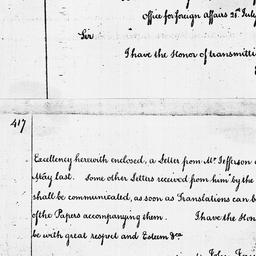 Office for foreign affairs 21st July
Sir
I have the Honor of transmitti
417
Excellency herewith enclosed, a Letter from Mr Jefferson
May last. Some other Letters received from him by the
shall be communicated, as soon as Translations can b
of the Papers accompanying them. I have the Hon
be with great respect and Esteem &ca